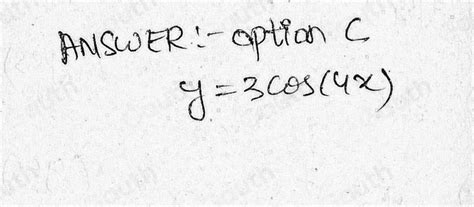 ANSWER:- option C
y = 3cos(4x)